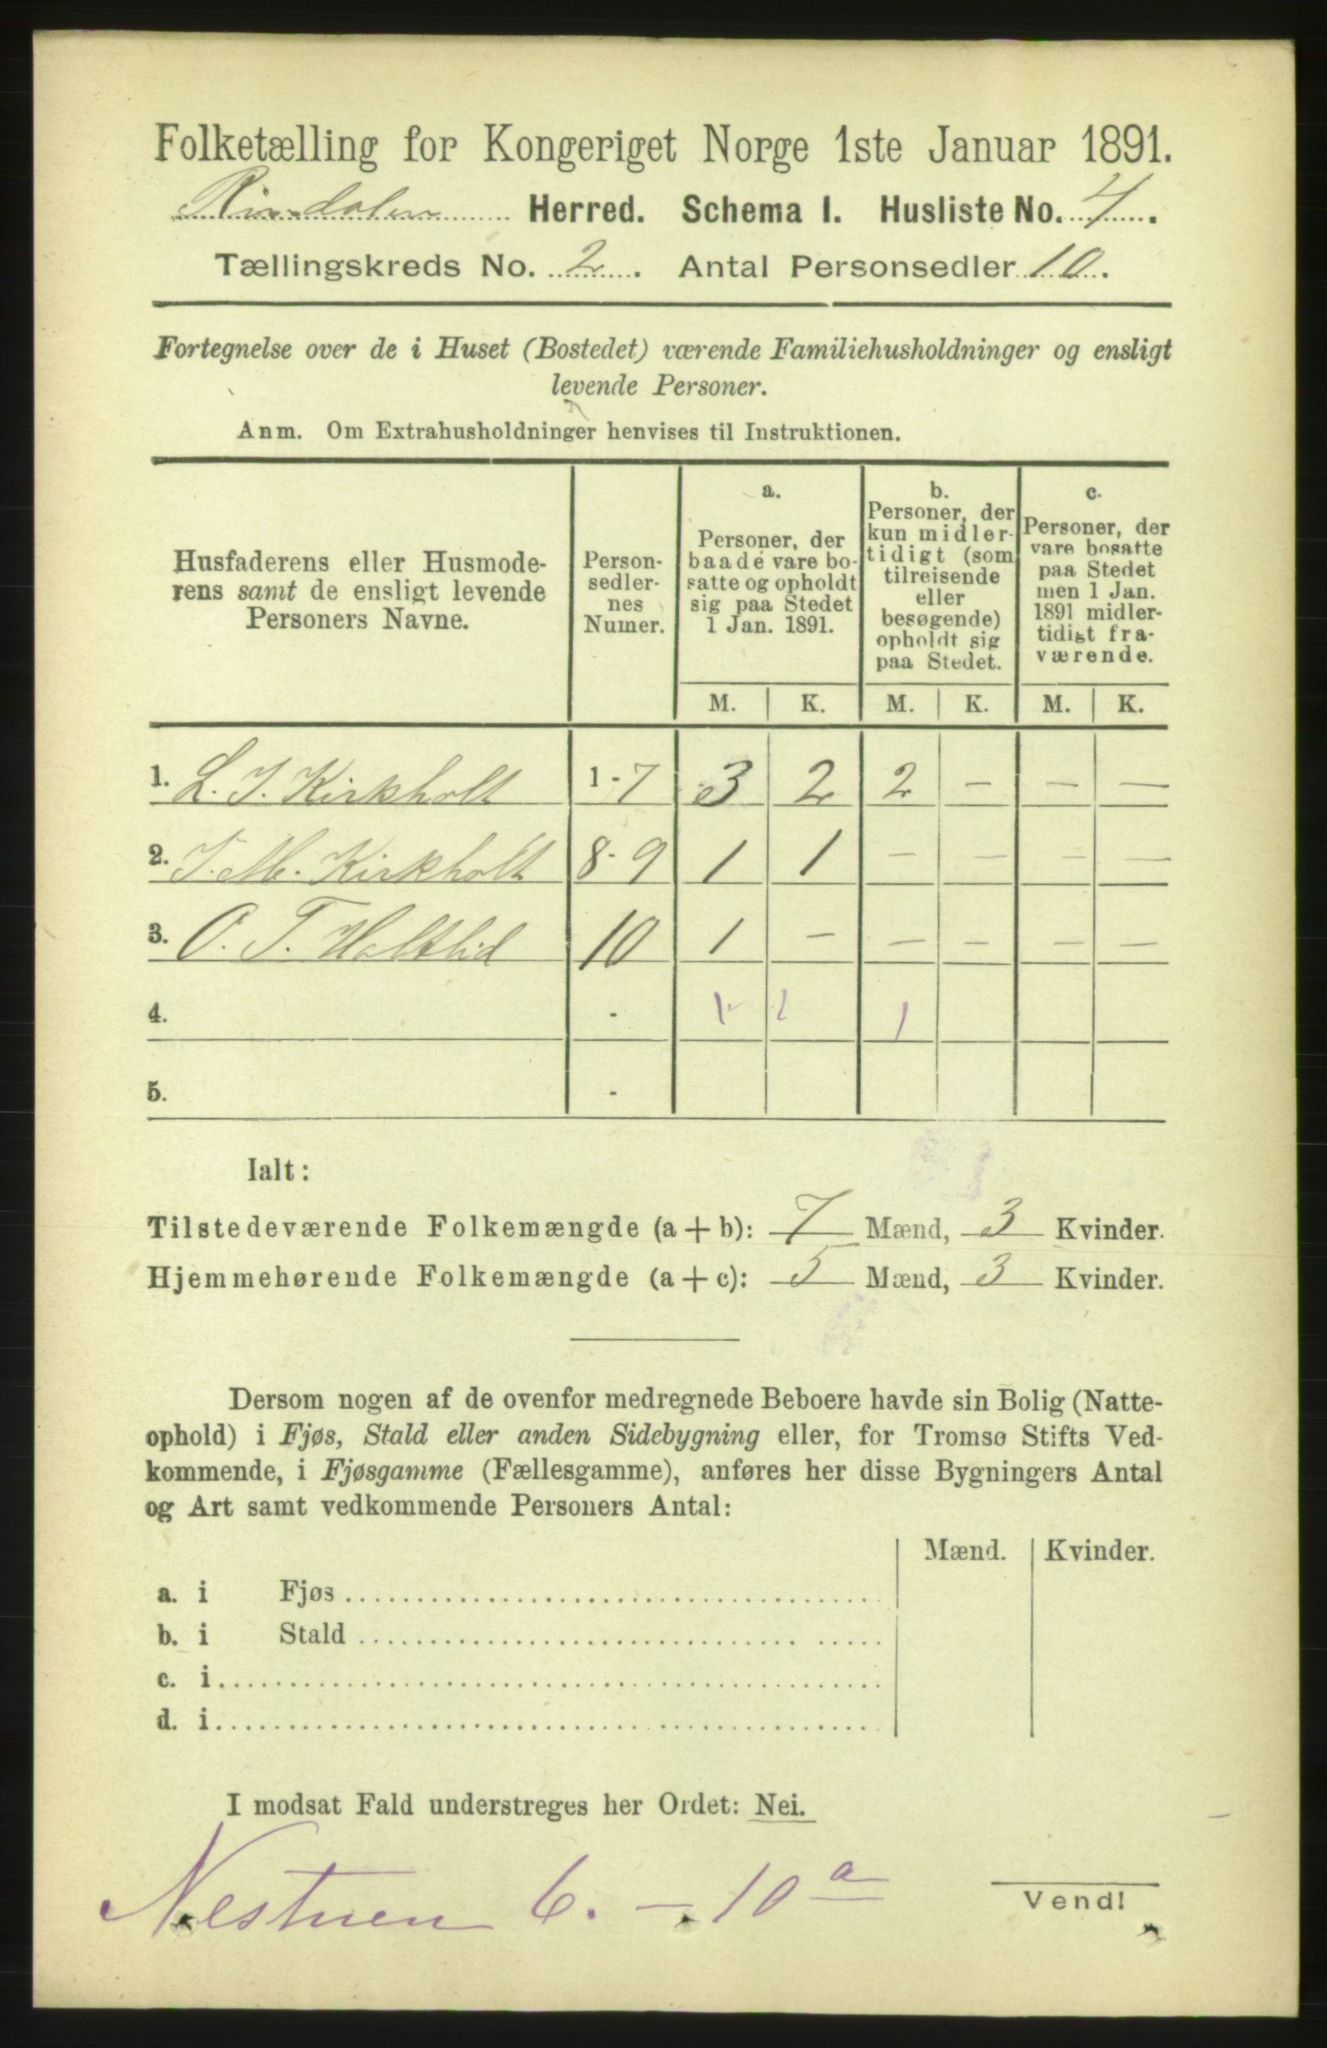 Folketælling for Kongeriget Norge 1ste Januar 1891.
Rindalen Herred. Schema I. Husliste No. 4.
Tællingskreds No. 2. Antal Personsedler 10.
Fortegnelse over de i Huset (Bostedet) værende Familiehusholdninger og ensligt
levende Personer.
Anm. Om Extrahusholdninger henvises til Instruktionen.
Husfaderens eller Husmode-
rens samt de ensligt levende
Personers Navne.
Person-
sedler-
nes
Numer.
a.
Personer, der
baade vare bo-
satte og opholdt
sig paa Stedet
1 Jan. 1891.
b.
Personer, der
kun midler-
tidigt (som
tilreisende
eller
besøgende)
opholdt sig
paa Stedet.
c.
Personer, der
vare bosatte
paa Stedet
men 1 Jan.
1891 midler-
tidigt fra-
værende.
M. K. M. K. M. K.
1. L. J. Kirkholt 1-7 3 2 2 — — —
2. J. M. Kirkholt 8-9 1 1 — — — —
3. O. T. Holtlid 10 1 — — — — —
4. - 1 1 1
5. -
Ialt:
Tilstedeværende Folkemængde (a + b): 7 Mænd, 3 Kvinder.
Hjemmehørende Folkemængde (a + c): 5 Mænd, 3 Kvinder.
Dersom nogen af de ovenfor medregnede Beboere havde sin Bolig (Natte-
ophold) i Fjøs, Stald eller anden Sidebygning eller, for Tromsø Stifts Ved-
kommende, i Fjøsgamme (Fællesgamme), anføres her disse Bygningers Antal
og Art samt vedkommende Personers Antal:
Mænd. Kvinder.
a. i Fjøs
b. i Stald
c. i
d. i
I modsat Fald understreges her Ordet: Nei.
Nestuen 6. — 10 a
Vend!